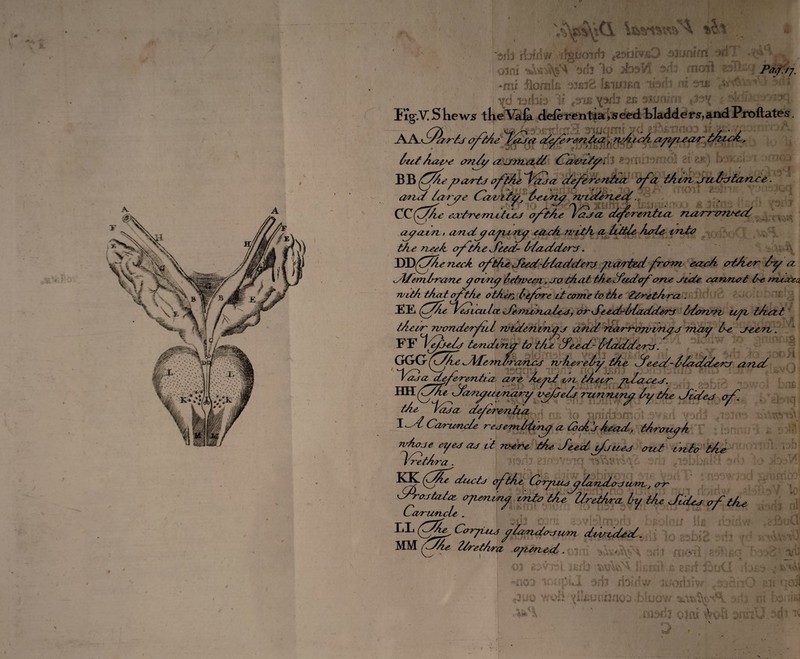 Pag. 17.
Fig. V. Shews the Vasa deferentia, seed bladders, and Prostates.
AA. Parts of the Vasa deferentia, which appear thick,
but have only a small Cavity.
BB (The parts of the Vasa deferentia of a thin substance
and large Cavity, being widened.
CC (The extremities of the Vasa deferentia narrowed
again, and gaping each with a little hole into
the neek of the Seed-bladders.
DD (The neck of the Seed-bladders parted from each other by a
Membrane going between, so that the Seed of one side cannot be mixed
with that of the other, before it come to the Urethra.
EE (The Vesiculæ Seminales, or Seed-bladders blown up that
their wonderful widenings and narrowings may be seen.
FF Vessels tending to the Seed-bladders.
GGG (The Membranes whereby the Seed-bladders and
Vasa deferentia are kept in their places.
HH (The Sanguinary vessels running by the Sides of
the Vasa deferentia
I A Caruncle resembling a Cock's head, through
whose eyes as it were the Seed issues out into the
Vrethra.
KK (The ducts of the Corpus glandosum, or
Prostatæ opening into the Urethra by the Sides of the
Caruncle.
LL (The Corpus glandosum divided.
MM (The Urethra opened.
A
A
H
F
F
E
B
B
E
D
G
L
L
K
K
I
M
M